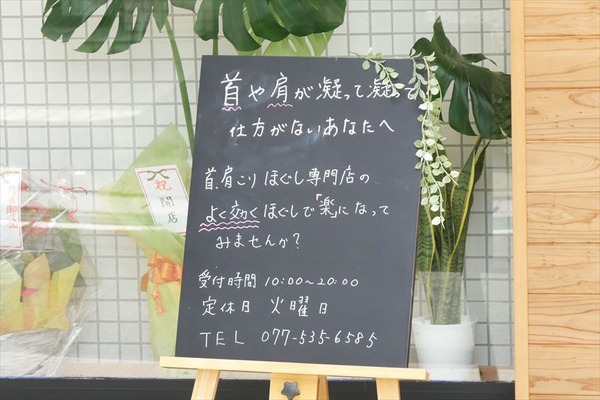 首や肩が凝って凝って
仕方がないあなたへ
首、肩こりほぐし専門店の
よく効くほぐしで「楽」になって
みませんか?
受付時間 10:00〜20:00
定休日 火曜日
TEL 077-535-6585
祝
開店